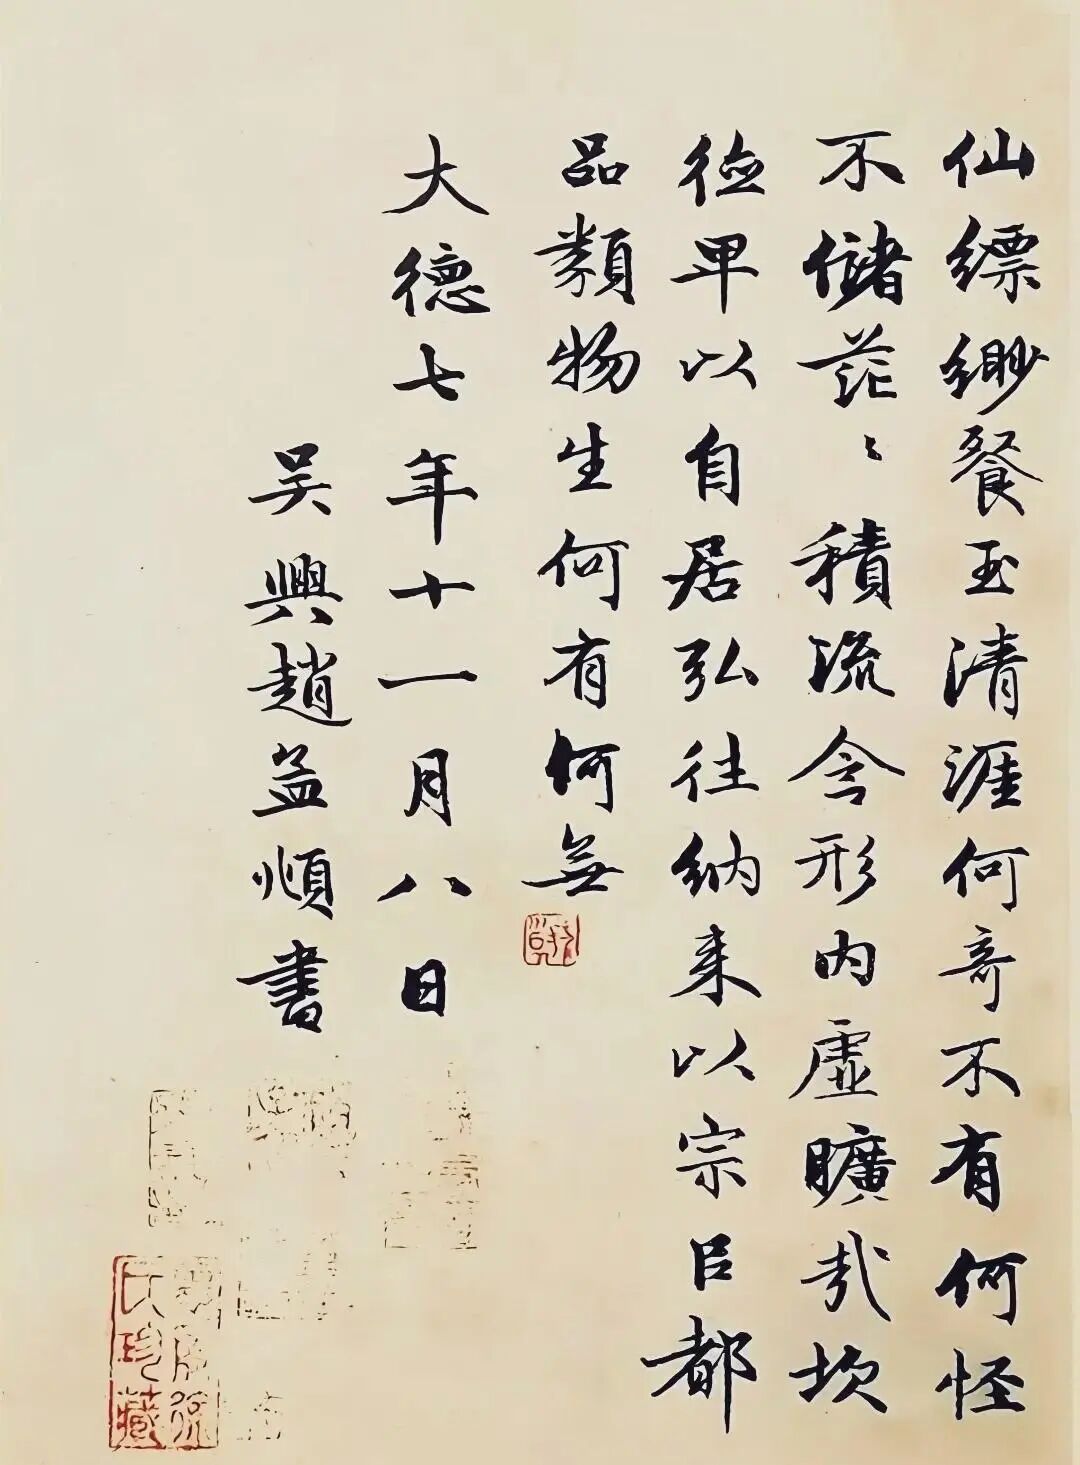 仙縹緲餐玉清涯何奇不有何怪
不儲茫〻積流含形内虚曠哉坎
徳卑以自居弘往納来以宗以都
品類物生何有何無
大德七年十一月八日
吳興趙孟頫書
氏珍藏